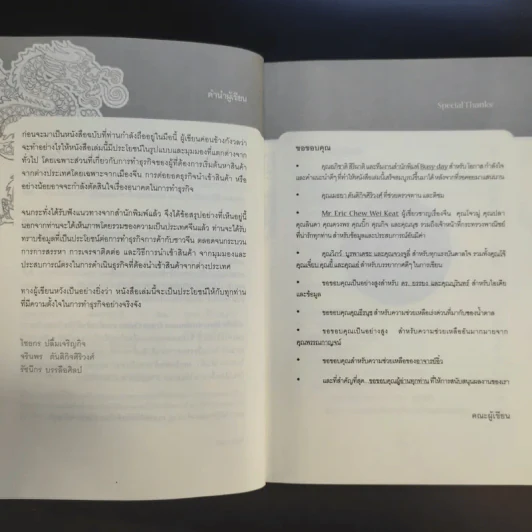 คำนำผู้เขียน
ก่อนจะมาเป็นหนังสือฉบับที่ท่านกำลังถืออยู่ในมือนี้ ผู้เขียนค่อนข้างกังวลว่า
จะทำอย่างไรให้หนังสือเล่มนี้มีประโยชน์ในรูปแบบและมุมมองที่แตกต่างจาก
ทั่วไป โดยเฉพาะส่วนที่เกี่ยวกับการทำธุรกิจของผู้ที่ต้องการเริ่มต้นหาสินค้า
จากต่างประเทศโดยเฉพาะจากเมืองจีน การต่อยอดธุรกิจนำเข้าสินค้า หรือ
อย่างน้อยอาจจะกำลังตัดสินใจเรื่องอนาคตในการทำธุรกิจ
จนกระทั่งได้รับฟังแนวทางจากสำนักพิมพ์แล้ว จึงได้ข้อสรุปอย่างที่เห็นอยู่นี้
นอกจากท่านจะได้เห็นภาพโดยรวมของความเป็นประเทศจีนแล้ว ท่านจะได้รับ
ทราบข้อมูลที่เป็นประโยชน์ต่อการทำธุรกิจการค้ากับชาวจีน ตลอดจนกระบวน
การการสรรหา การเจรจาติดต่อ และวิธีการนำเข้าสินค้า จากมุมมองและ
ประสบการณ์ตรงในการดำเนินธุรกิจที่ต้องนำเข้าสินค้าจากต่างประเทศ
ทางผู้เขียนหวังเป็นอย่างยิ่งว่า หนังสือเล่มนี้จะเป็นประโยชน์ให้กับทุกท่าน
ที่มีความตั้งใจในการทำธุรกิจอย่างจริงจัง
ไชยกร ปลื้มเจริญกิจ
จรินพร ตันติกิจศิริวงศ์
รัชนีกร บรรลือศิลป์
Special Thanks
ขอขอบคุณ
• และทีมงานสำนักพิมพ์ Busy-day สำหรับ โอกาส กำลังใจ
และคำแนะนำดีๆ ที่ทำให้หนังสือเล่มนี้เสร็จสมบูรณ์ขึ้นมาได้ หลังจากที่รอคอยมาแสนนาน
• ตันติกิจศิริวงศ์ ที่ช่วยตรวจทาน และติชม
• Mr. Eric Chew Wei Keat ผู้เชี่ยวชาญเรื่องจีน
รวมถึงเจ้าหน้าที่กระทรวงพาณิชย์
ที่น่ารักทุกท่าน สำหรับข้อมูลและประสบการณ์อันมีค่า
• สำหรับทุกแรงบันดาลใจ รวมทั้ง
สำหรับบรรยากาศดีๆ ในการเขียน
• ขอขอบคุณเป็นอย่างสูงสำหรับ สำหรับไอเดีย
และข้อมูล
• ขอขอบคุณ สำหรับความช่วยเหลือเร่งด่วนที่มากับซองน้ำตาล
• ขอขอบคุณเป็นอย่างสูง สำหรับความช่วยเหลืออันมากมายจาก
• ขอขอบคุณสำหรับความช่วยเหลือของอาจารย์
• และที่สำคัญที่สุด...ขอขอบคุณผู้อ่านทุกท่าน ที่ให้การสนับสนุนผลงานของเรา
คณะผู้เขียน